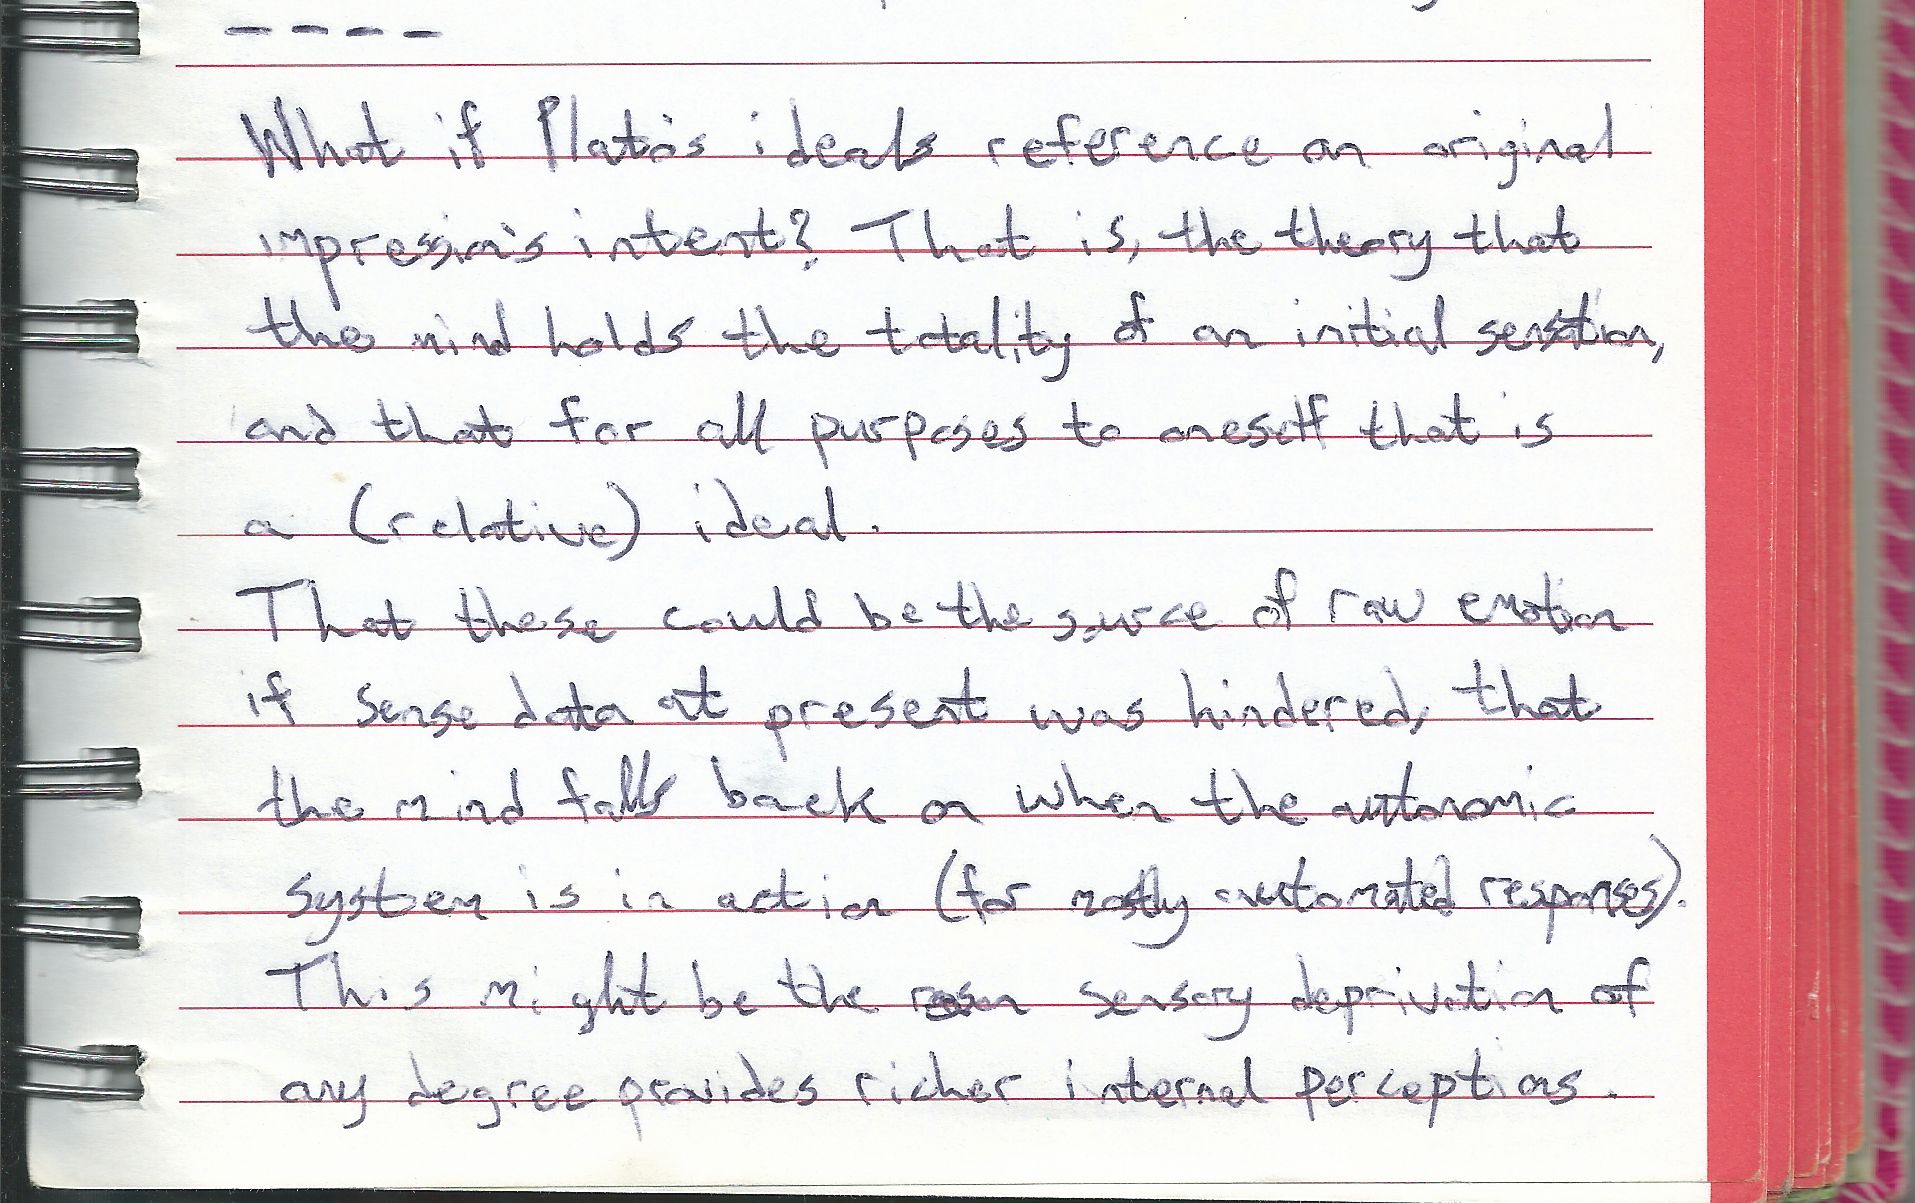 ----
What if Plato's ideals reference an original
impression's intent? That is, the theory that
the mind holds the totality of an initial sensation,
and that for all purposes to oneself that is
a (relative) ideal.
That these could be the source of raw emotion
if sense data at present was hindered, that
the mind falls back on when the autonomic
system is in action (for mostly automated responses).
This might be the reason sensory deprivation of
any degree provides richer internal perceptions.